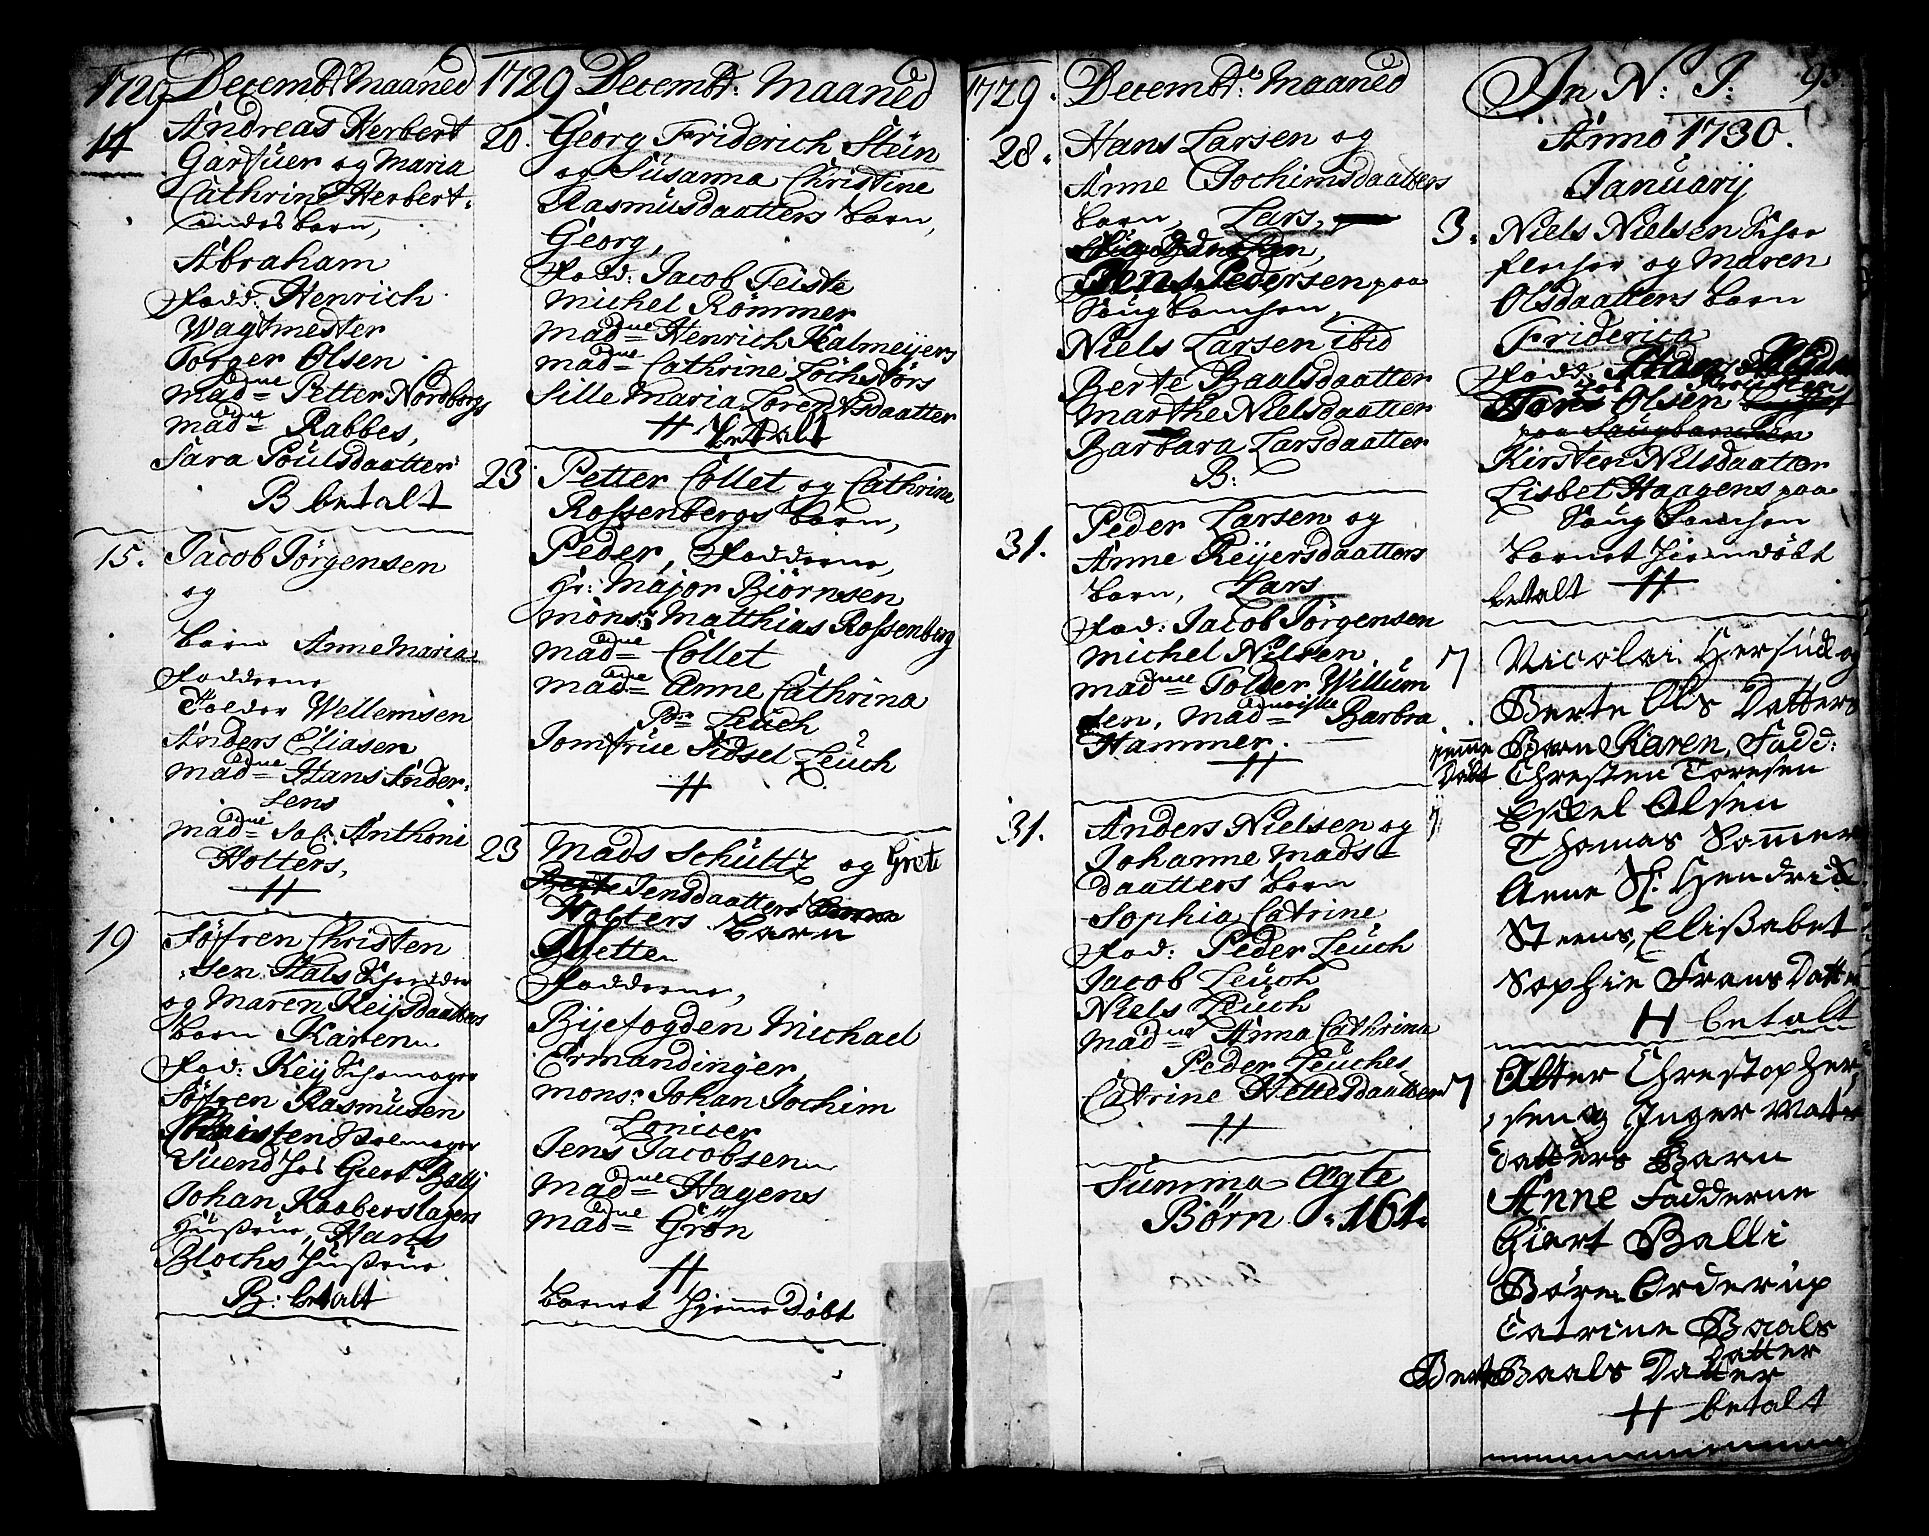 1729 Decembr: Maaned
14 Andreas Herbert
Garfuer og Maria
Cathrine Herbert.
Barn,
Abraham
Fadd: Henrich
Wagtmester
Torger Olsen
Madme Petter Nordborgs
Madme Rabbes,
Sara Poulsdaatter
B betalt
15. Jacob Jörgensen
og
Barn Anne Maria
Fadderne
Tolder Wellemsen
Anders Eliasen
Madme Hans Ander-
sens
Madme Sal: Anthoni
Holters,
H
19 Söfren Christen
sen Hals
og Maren Keijsdaatters
Barn Karen
Fad: Keij
Söfren Rasmusen
Christen
Suend hos Giert Balli
Johan Kaaberslagers
Hustrue, Hans
Blochs Hustrue
B: betalt
1729 Decembr: Maaned
20. Georg Friderich Stein
og Susanna Christine
Rasmusdaatters Barn,
Georg,
Fadd: Jacob Teiste
Michel Römmer
Madme Henrich Kalmeijers
Madme Cathrine Lochstörs
Sille Maria Lorentzdaatter
H betalt
23 Petter Collet og Cathrine
Rossenbergs Barn,
Peder, Fadderne,
Hr: Major Biörnsen
Mons: Matthias Rossenberg
Madme Collet
Madme Anne Cathrina
Pr Leuch
Jomfrue Sidsel Leuch
H
23 Mads Schultz og Grete
Jensdaatters
Holters Barn
Mette
Fadderne,
Bijefogden Michael
Ermandinger,
Mons: Johan Jochim
Loniter
Jens Jacobsen
Madme Hagens
Madme Grön
H
Barnet Hjemme Döbt
1729. Decembr: Maaned
28. Hans Larsen og
Anne Jochimsdaatters
Barn, Lars,
Jens Pedersen paa
Saugbanchen,
Niels Larsen ibid
Berte Baalsdaatter
Marthe Nielsdaatter
Barbara Larsdaatter
B:
31. Peder Larsen og
Anne Reijersdaatters
Barn, Lars
Fad: Jacob Jörgensen
Michel Nilsen
Madme Tolder Willum
sen, Barbra
Hammer.
H
31. Anders Nielsen og
Johanne Mads-
daatters Barn
Sophia Catrine
Fad: Peder Leuch
Jacob Leuch
Niels Leuch
Madme Anna Cathrina
Peder Leuches
Catrine Hellesdaatter
H
Summa Ægte
Börn 161.
In N: J: 93.
Anno 1730.
Januarij
3. Niels Nielsen
og Maren
Olsdaatters Barn
Friderica
Fadd:
Olsen
paa Saugbanchen
Kirsten Nilsdaatter
Lisbet Haagens paa
Saug Banchen
Barnet Hiemdöbt
betalt H
7 Nicolai Hersud og
Berte Ols Datters
hjemme Döbt Barn Karen, Fadd:
Christen Toresen
Eskel Olsen
Thomas Sommer
Anne Sl: Hendrich
Steens, Elisabet
Sophie Frans Datter
H betalt
7 Alter Christopher
sen og Inger Mats
Datters Barn
Anne Fadderne
Giert Balli
Bören Orderup
Catrine Baals
Datter
Berte Baals Datter
H betalt